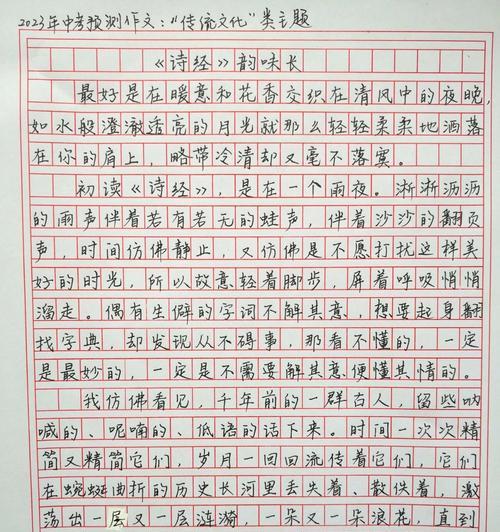 2023年中考预测作文："传统文化"类主题
《诗经》韵味长
最好是在暖意和花香交织在清风中的夜晚，
如水般澄澈透亮的月光就那么轻轻柔柔地洒落
在你的肩上，略带冷清却又毫不落寞。
初读《诗经》，是在一个雨夜。淅淅沥沥
的雨声伴着若有若无的蛙声，伴着沙沙的翻页
声，时间仿佛静止，又仿佛是不愿打扰这样美
好的时光，所以故意轻着脚步，屏着呼吸悄悄
溜走。偶有生僻的字词不解其意，想要起身翻
找字典，却发现从不碍事，那看不懂的，一定
是最妙的，一定是不需要解其意便懂其情的。
我仿佛看见，千年前的一群古人，留些呐
喊的、呢喃的、低语的话下来。时间一次次精
简又精简它们，岁月一回回流传着它们，它们
在蜿蜒曲折的历史长河里丢失着、散佚着，激
荡出一层又一层涟漪，一朵又一朵浪花，直到